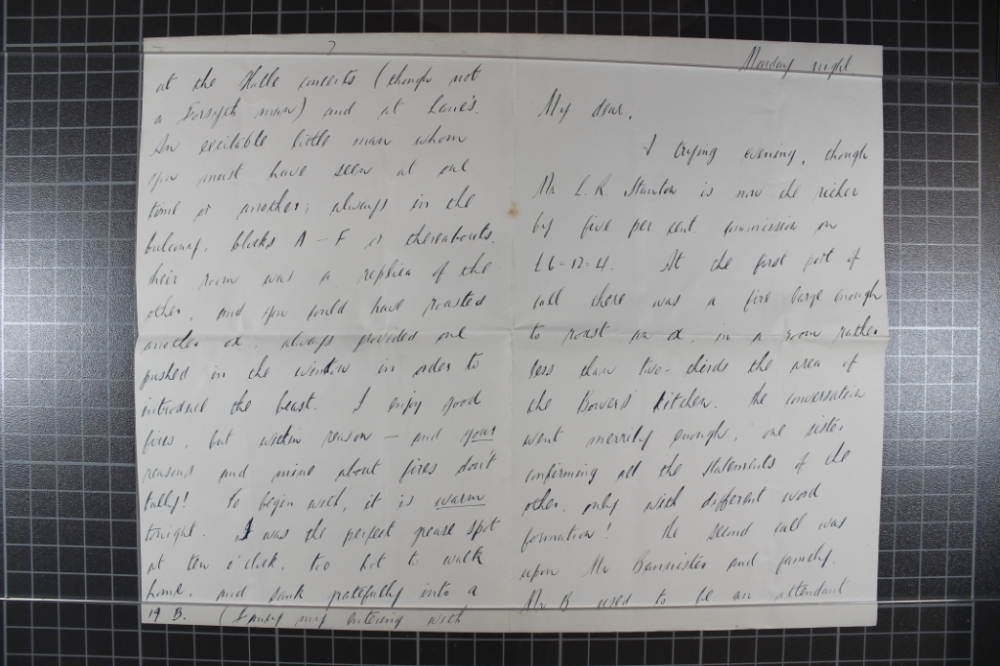 Monday night
My dear,
A trying evening, though
Mr L.R. Stanton is now the richer
by five per cent. commission on
£6-12-4. At the first port of
call there was a fire large enough
to roast an ox, in a room rather
less than two-thirds the area of
the Bowers' kitchen. The conversation
went merrily enough, one sister
confirming all the statements of the
other, only with different word
formation! The second call was
upon Mr Bannister and family.
Mr B used to be an attendant
7
at the Halle concerts (though not
a Forsyth man) and at Lane's.
An excitable little man whom
you must have seen at one
time or another; always in the
balcony, blocks A – F or thereabouts.
Their room was a replica of the
other, and you could have roasted
another ox, always provided one
pushed in the window in order to
introduce the beast. I enjoy good
fires, but within reason – and your
reasons and mine about fires don't
tally! To begin with, it is warm
tonight. I was the perfect grease spot
at ten o'clock, too hot to walk
home, and sank gratefully into a
19 B. (Fancy my entering with